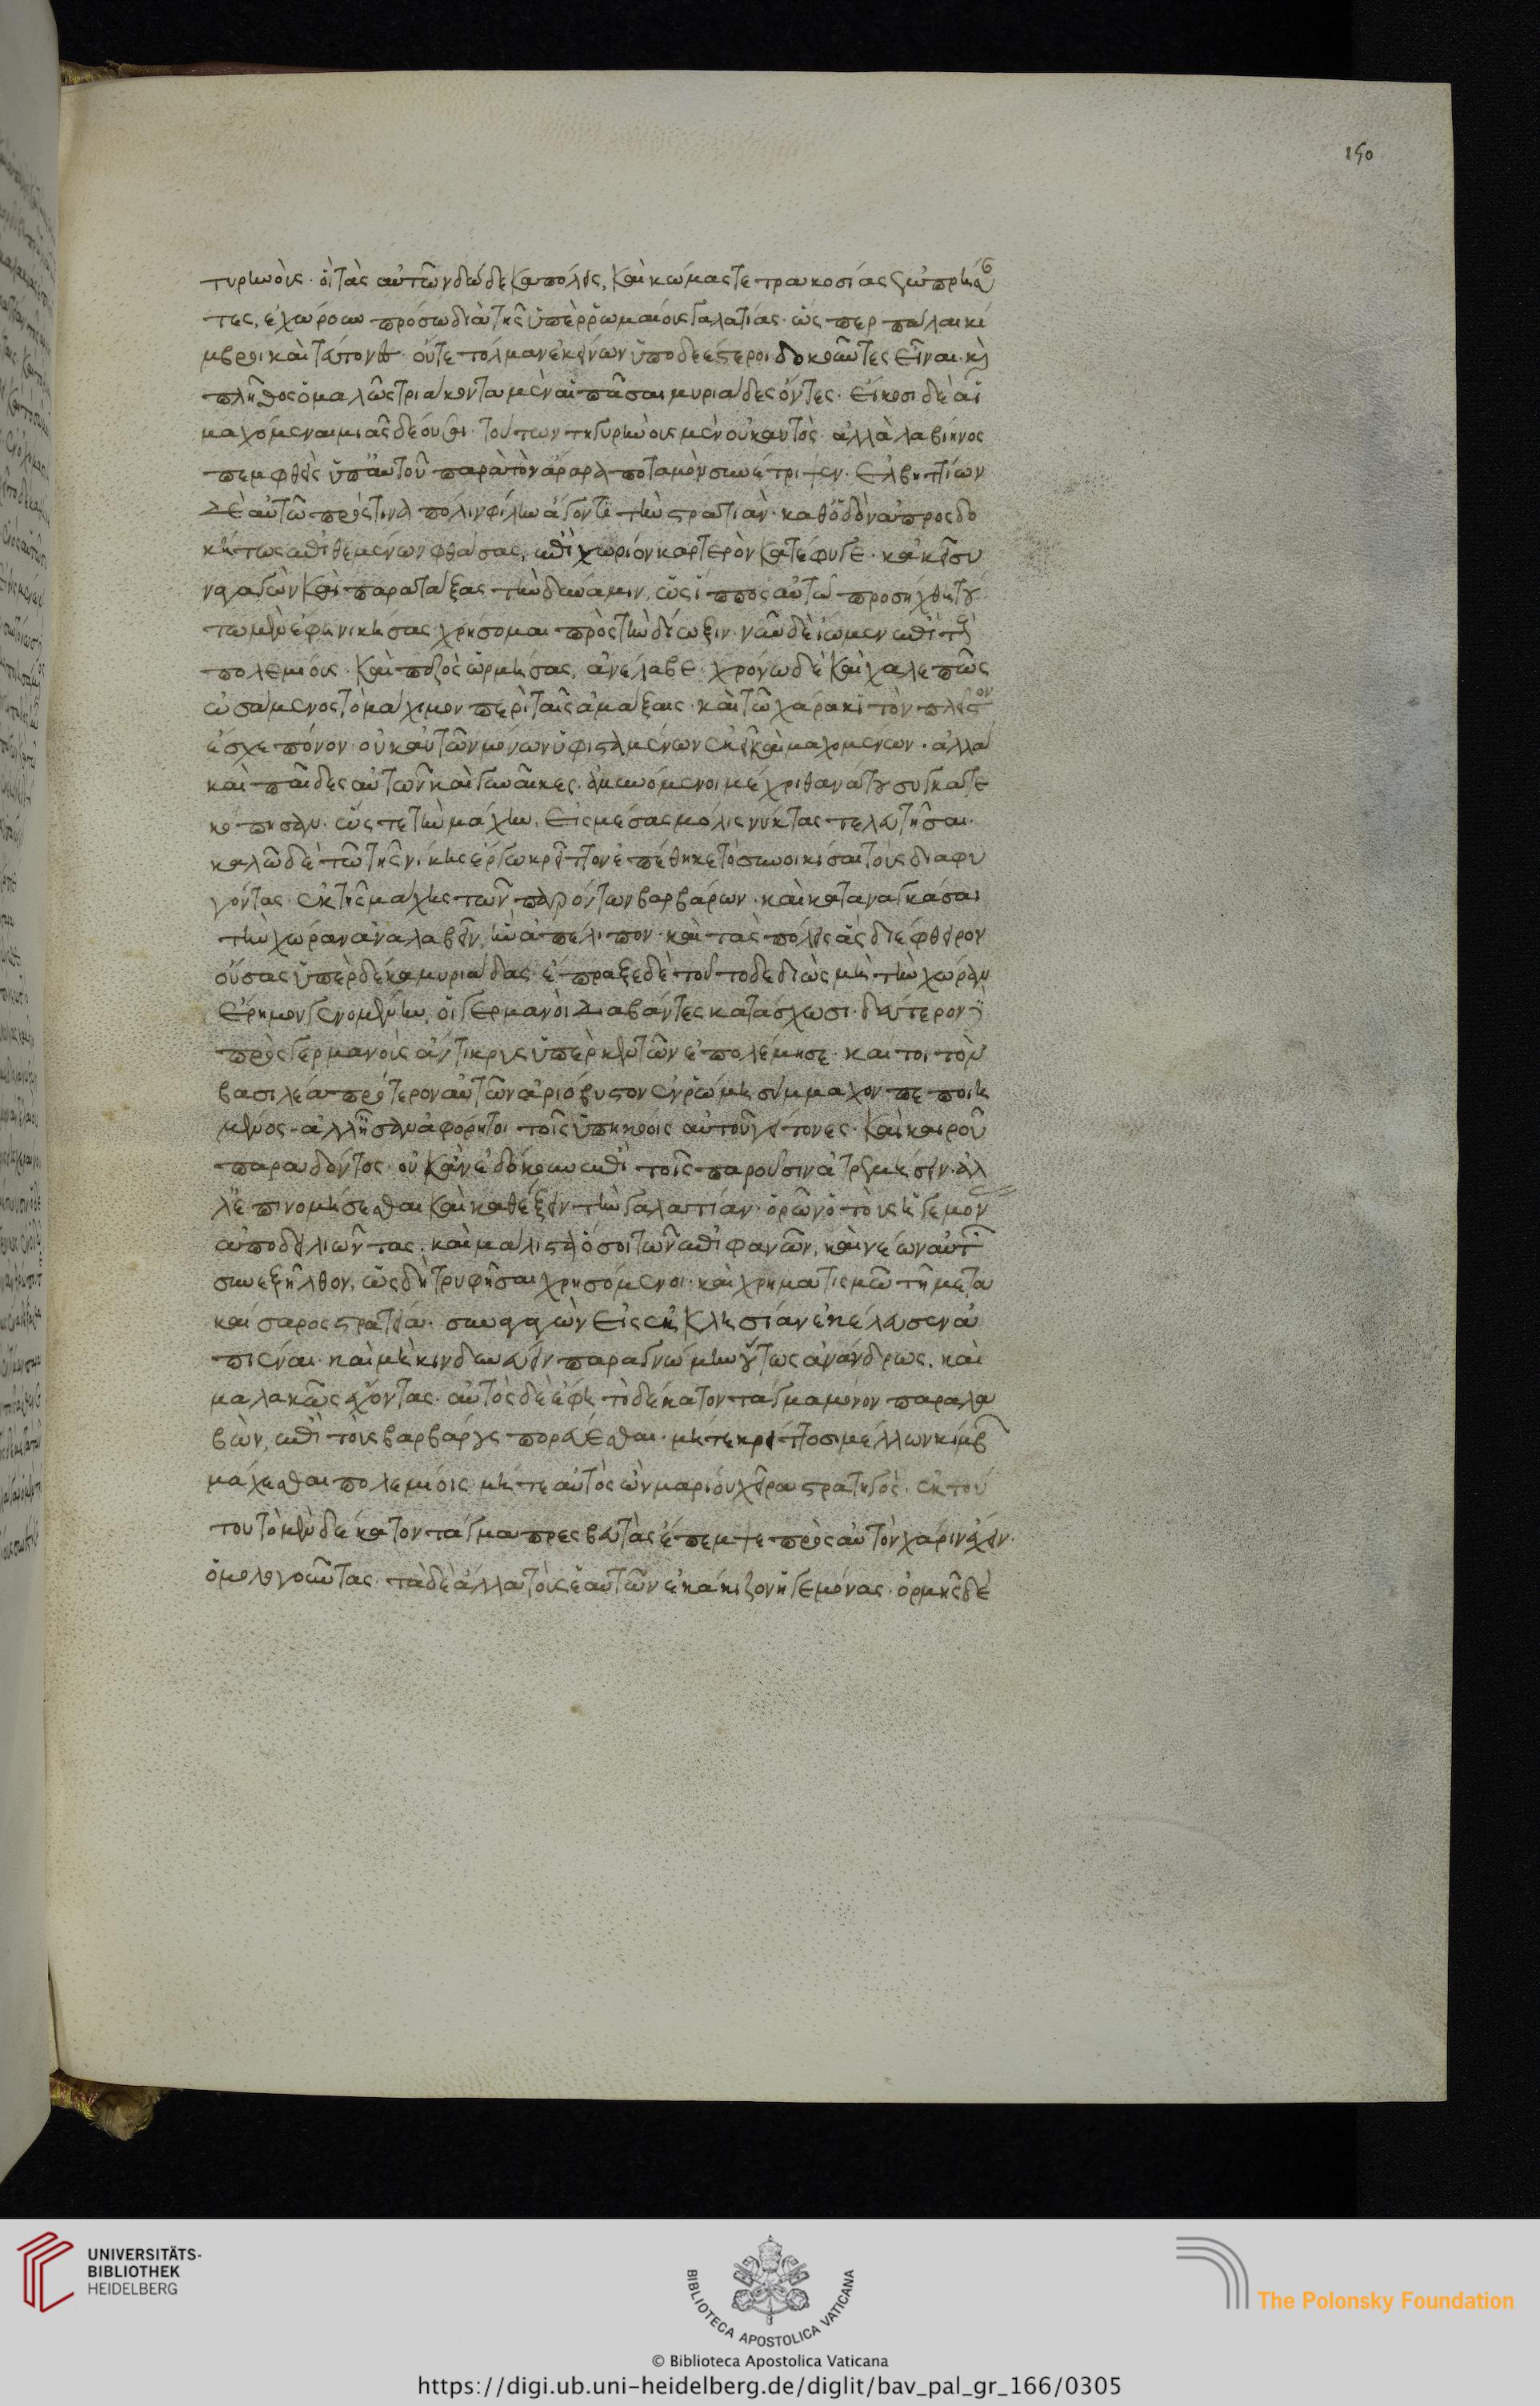 150
τυρινοὺς· οἳ τὰς αὑτῶν δώδεκα πόλεις, καὶ κώμας τετρακοσίας ἐμπρήσαν
τες, ἐχώρουν πρόσω διὰ τῆς ὑπὲρ ῥωμαίοις γαλατίας· ὥσπερ πάλαι κί
μβροι καὶ τεύτονες· οὔτε τόλμαν ἐκείνων ὑποδεέστεροι δοκοῦντες εἶναι· καὶ
πλῆθος ὁμαλῶς τριάκοντα μὲν αἱ πᾶσαι μυριάδες ὄντες· εἴκοσι δὲ αἱ
μαχόμεναι μιᾶς δέουσαι· τούτων τιγυρίνους μὲν οὐκ αὐτὸς· ἀλλὰ λαβιηνὸς
πεμφθεὶς ὑπ' αὐτοῦ παρὰ τὸν ἄραρα ποταμὸν συνέτριψεν· ἐλβηττίων
δὲ αὐτῶ πρός τινα πόλιν φίλην ἄγοντι τὴν στρατιὰν· καθ' ὁδὸν ἀπροσδο
κήτως ἐπιθεμένων φθάσας, ἐπὶ χωρίον καρτερὸν κατέφυγε· κἀκεῖ συ
ναγαγὼν καὶ παρατάξας τὴν δύναμιν, ὡς ἵππος αὐτῶ προσήχθη τού
τω μὲν ἔφη νικήσας χρήσομαι πρὸς τὴν δίωξιν· νῦν δὲ ἴωμεν ἐπὶ τοὺς
πολεμίους· καὶ πεζὸς ὁρμήσας, ἀνέλαβε· χρόνω δὲ καὶ χαλεπῶς
ὠσάμενος τὸ μάχιμον περὶ ταῖς ἁμάξαις· καὶ τῶ χάρακι τὸν πλεῖστον
ἔσχε πόνον· οὐκ αὐτῶν μόνων ὑφισταμένων ἐκεῖ καὶ μαχομένων· ἀλλὰ
καὶ παῖδες αὐτῶν καὶ γυναῖκες· ἀμυνόμενοι μέχρι θανάτου συγκατε
κόπησαν· ὥστε τὴν μάχην, εἰς μέσας μόλις νύκτας τελευτῆσαι·
καλῶ δὲ τῶ τῆς νίκης ἔργω κρεῖττον ἐπέθηκε τὸ συνοικίσαι τοὺς διαφυ
γόντας· ἐκ τῆς μάχης τῶν παρόντων βαρβάρων· καὶ καταναγκάσαι
τὴν χώραν ἀναλαβεῖν, ἣν ἀπέλιπον· καὶ τὰς πόλεις ἃς διέφθειρον
οὔσας ὑπὲρ δέκα μυριάδας· ἔπραξε δὲ τοῦτο δεδιὼς μὴ τὴν χώραν
ἔρημον γενομένην, οἱ γερμανοὶ διαβάντες κατάσχωσι· δεύτερον
πρὸς γερμανοὺς ἄντικρυς ὑπὲρ κελτῶν ἐπολέμησε· καίτοι τὸν
βασιλέα πρότερον αὐτῶν ἀριόβυστον ἐν ῥώμη σύμμαχον πεποιη
μένος· ἀλλ' ἦσαν ἀφόρητοι τοῖς ὑπηκόοις αὐτοῦ γείτονες· καὶ καιροῦ
παραδόντος· οὐκ ἂν ἐδόκουν ἐπὶ τοῖς παροῦσιν ἀτρεμήσειν· ἀλ
λ' ἐπινομήσεσθαι καὶ καθέξειν τὴν γαλατίαν· ὁρῶν τοὺς ἡγεμόν
ἀποδειλιῶντας· καὶ μάλιστα ὅσοι τῶν ἐπιφανῶν, καὶ νέων αὐτῶ
συνεξῆλθον, ὡς δὴ τρυφῆσαι χρησόμενοι· καὶ χρηματισμῶ τῆ μετὰ
καίσαρος στρατεία· συναγαγὼν εἰς ἐκκλησίαν ἐκέλευσεν ἀ
πιέναι· καὶ μὴ κινδυνεύειν παρὰ γνώμην οὕτως ἀνάνδρως· καὶ
μαλακῶς ἔχοντας· αὐτὸς δὲ ἔφη τὸ δέκατον τάγμα μόνον παραλα
βὼν, ἐπὶ τοὺς βαρβάρους πορεύεσθαι· μήτε κρείττοσι μέλλων κίμβρων
μάχεσθαι πολεμίοις· μήτε αὐτὸς ὢν μαρίου χείρων στρατηγός· ἐκ τού
του τὸ μὲν δέκατον τάγμα πρεσβευτὰς ἔπεμψε πρὸς αὐτὸν χάριν ἔχειν·
ὁμολογοῦντας· τὰ δὲ ἄλλα τοὺς ἑαυτῶν ἐκάκιζον ἡγεμόνας· ὁρμῆς δὲ
UNIVERSITÄTS-
BIBLIOTHEK
HEIDELBERG
BIBLIOTECA APOSTOLICA VATICANA
The Polonsky Foundation
© Biblioteca Apostolica Vaticana
https://digi.ub.uni-heidelberg.de/diglit/bav_pal_gr_166/0305